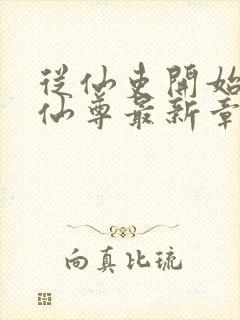 從仙吏開始
仙尊最新章
向真比琉